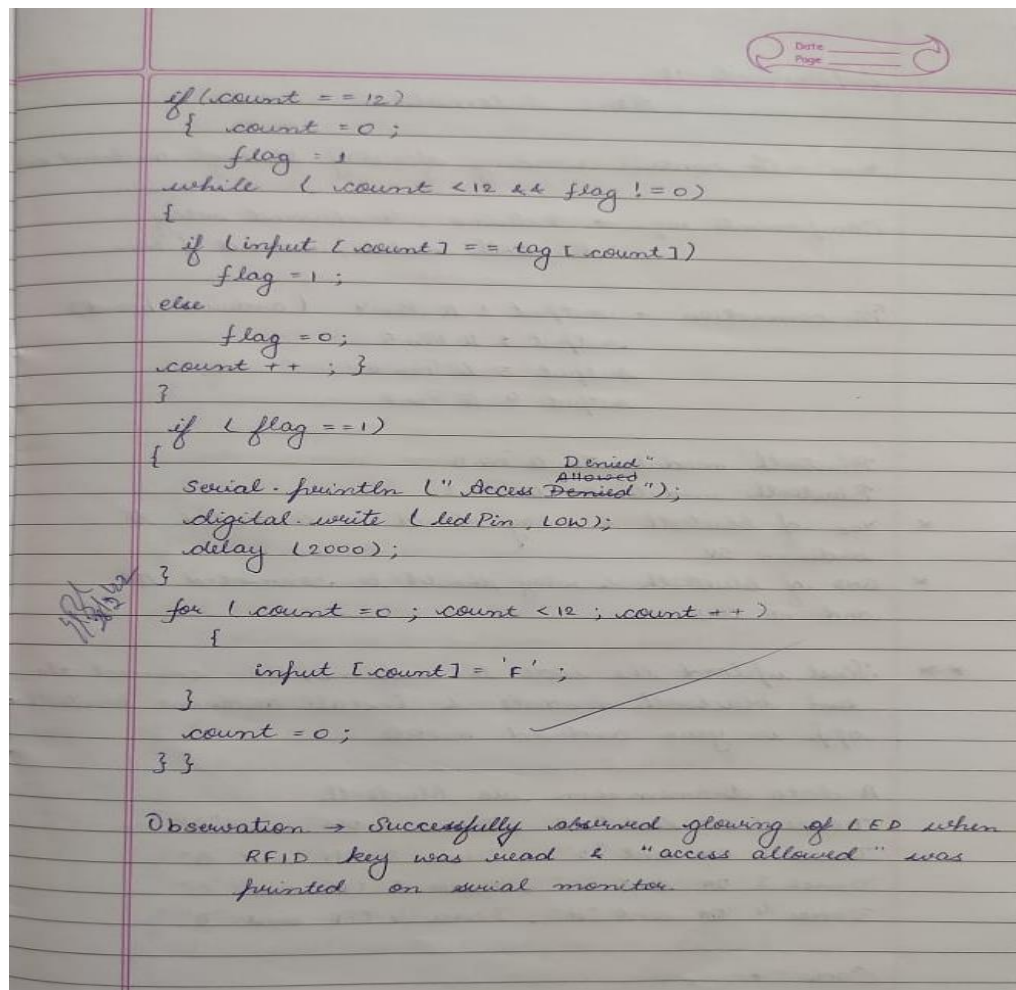 Date
Page
if (count == 12)
{ count = 0 ;
flag = 1
while ( count < 12 && flag != 0)
{
if (input [count] == tag [count])
flag = 1 ;
else
flag = 0;
count ++ ; }
}
if ( flag == 1)
{
Denied"
Allowed
Serial.println (" Access Denied");
digital.write (ledPin, LOW);
delay (2000);
}
for ( count = 0 ; count < 12 ; count ++ )
{
input [count] = 'F' ;
}
count = 0 ;
} }
Observation → Successfully observed glowing of LED when
RFID key was read & "access allowed" was
printed on serial monitor.